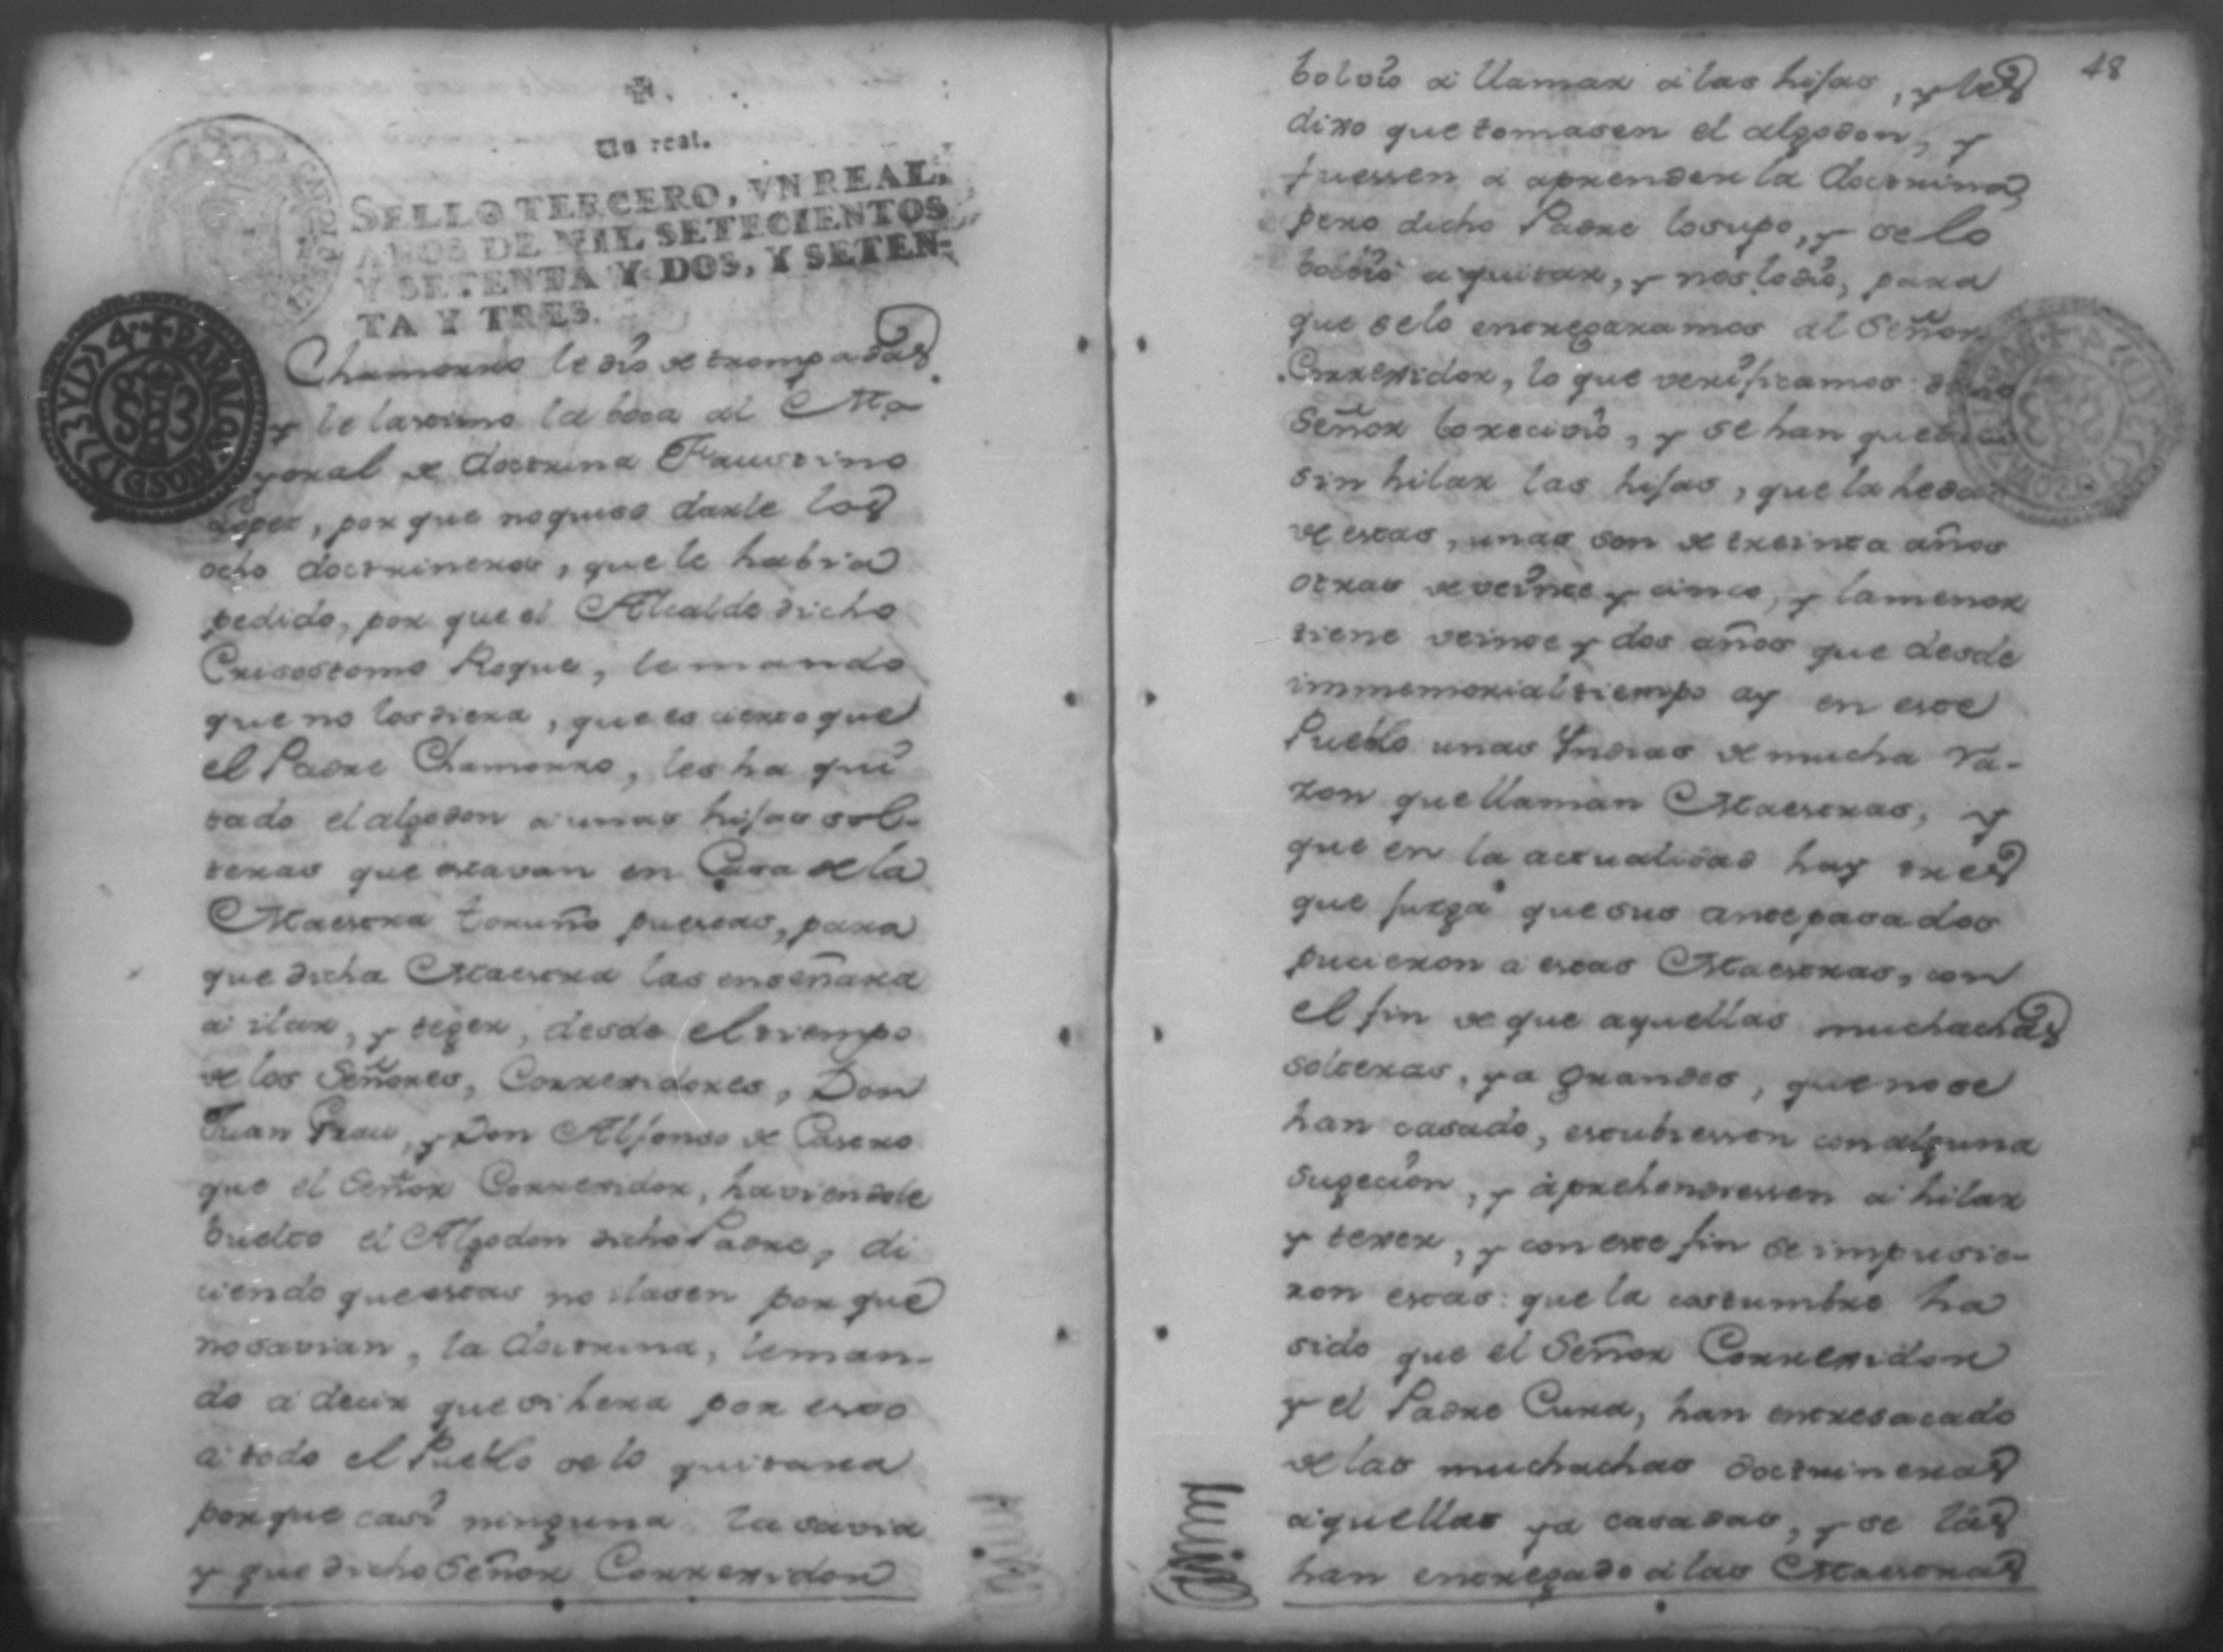 Un real.
SELLO TERCERO, VN REAL,
AÑOS DE MIL SETECIENTOS
Y SETENTA Y DOS, Y SETEN-
TA Y TRES.
PARA LOS AÑOS D 1773 Y 1774
Chamorro le dio de trompadas
y le lastimo la boca al Ma
yoral de doctrina Faustino
Lopez, por que no quiso darle los
ocho doctrineros, que le habia
pedido, por que el Alcalde dicho
Crisostomo Roque, le mando
que no los diera, que es cierto que
el Padre Chamorro, les ha qui
tado el algodon a unas hijas sol-
teras que estavan en Casa de la
Maestra puestas, para
que dicha Maestra las enseñara
a ilar, y teger, desde el tiempo
de los Señores, Correxidores, Don
Juan Prau, y Don Alfonso de Casero
que el Señor Correxidor, haviendole
buelto el Algodon dicho Padre, di
ciendo que estas no ilasen por que
no savian, la doctrina, le man-
do a decir que si hera por esto
a todo el Pueblo se lo quitara
por que casi ninguna la savia
y que dicho Señor Correxidor
48
bolvio a llamar a las hijas, y les
dixo que tomasen el algodon, y
fuessen a aprender la doctrina
pero dicho Padre lo supo, y se lo
bolvio a quitar, y nos lo dio, para
que se lo entregaramos al Señor
Correxidor, lo que verificamos: dicho
Señor lo recivio, y se han quedado
sin hilar las hijas, que la hedad
de estas, unas son de treinta años
otras de veinte y cinco, y la menor
tiene veinte y dos años que desde
immemorial tiempo ay en este
Pueblo unas Indias de mucha ra-
zon que llaman Maestras, y
que en la actualidad hay tres
que juzga que sus antepasados
pucieron a estas Maestras, con
el fin de que aquellas muchachas
solteras, ya grandes, que no se
han casado, estubiessen con alguna
sugecion, y aprehendiessen a hilar
y texer, y con este fin se impusie-
ron estas: que la costumbre ha
sido que el Señor Correxidor
y el Padre Cura, han entresacado
de las muchachas doctrineras
aquellas ya casadas, y se las
han entregado a las Maestras